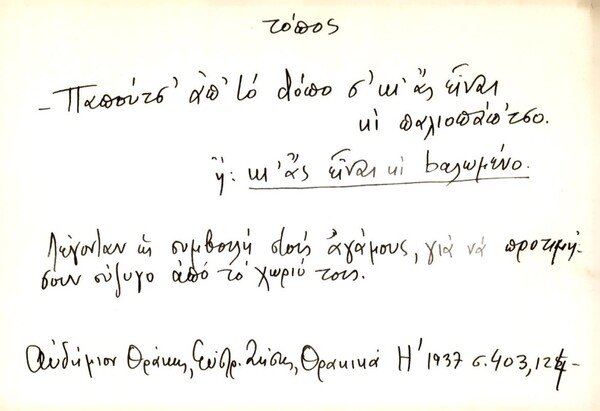 τόπος
– Παπούτσ' ἀπ' τό τόπο σ' κι' ἄς εἶναι
κὶ παλιοπάπ'τσο.
ἤ: κι' ἄς εἶναι κὶ βαλωμένο.
Λέγονταν ὡς συμβουλή στούς ἀγάμους, γιὰ νὰ προτιμή-
σουν σύζυγο ἀπό τὸ χωριό τους.
Αὐδήμιον Θράκης, Εὐστρ. Ζήσης, Θρακικά Η' 1937 σ. 403, 124-